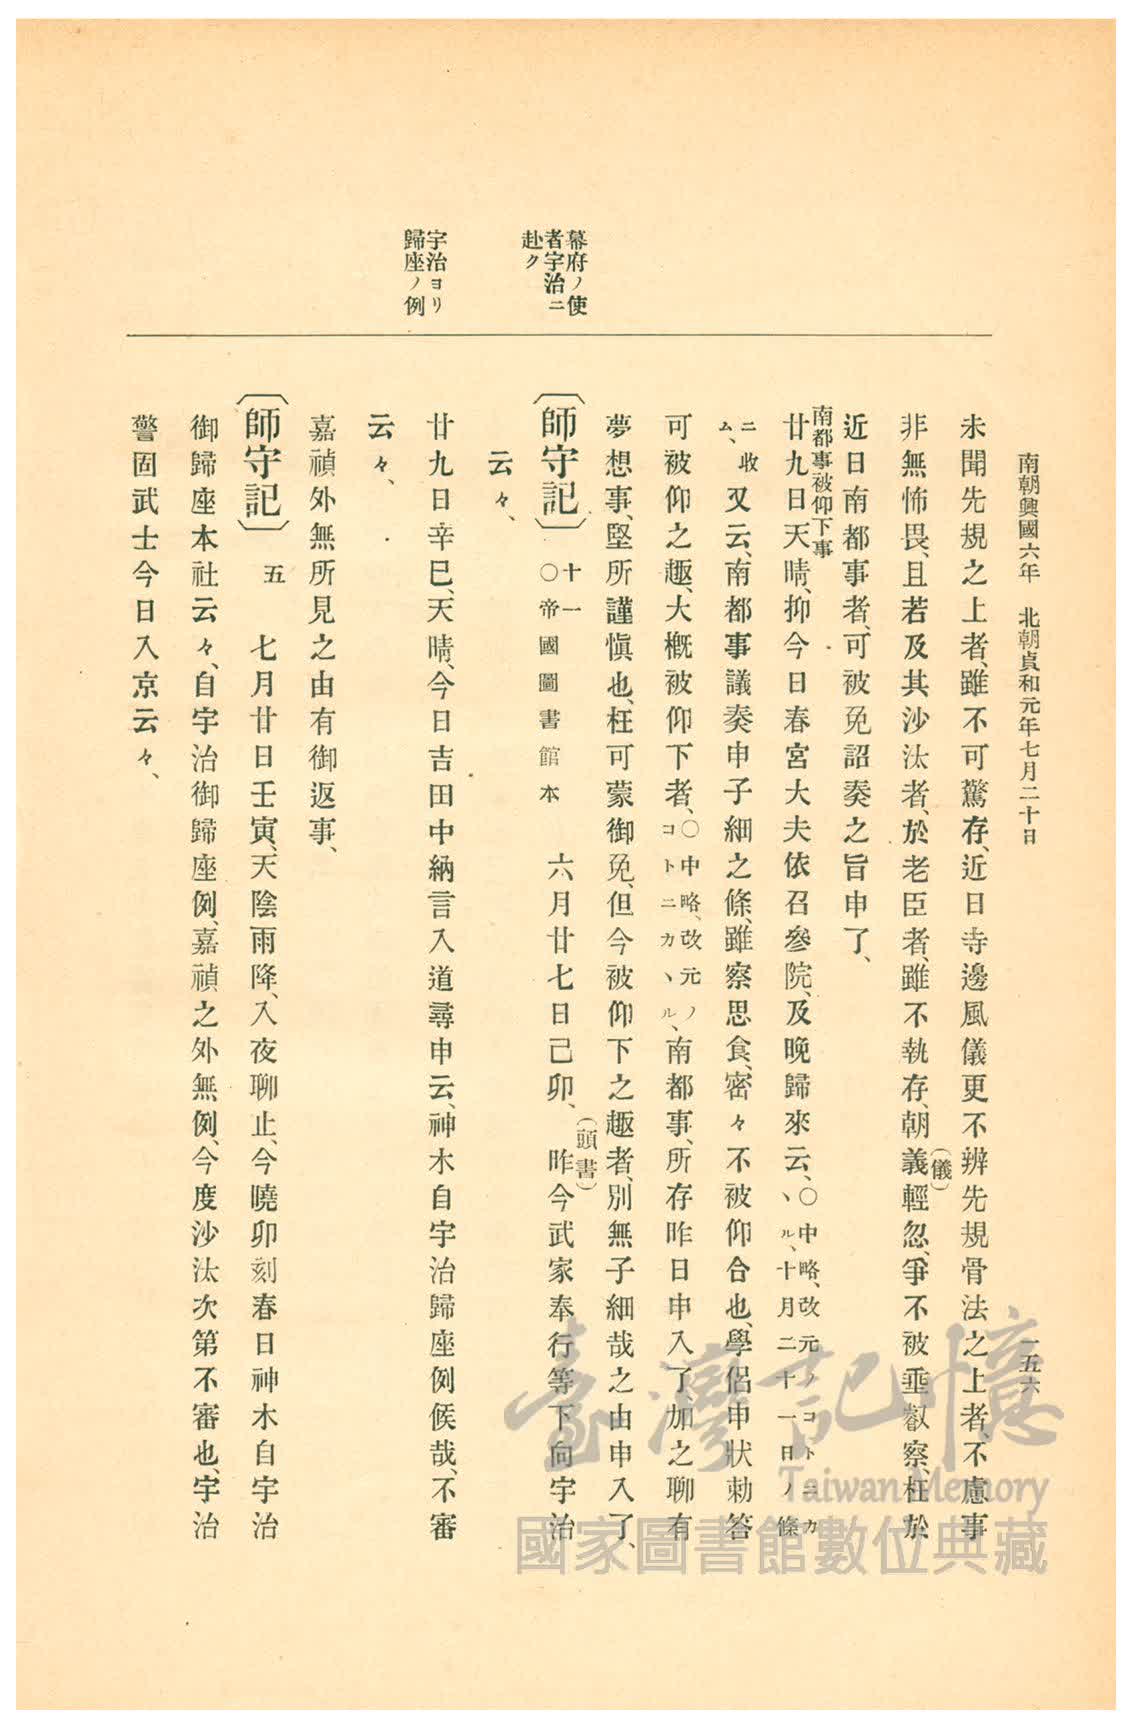 南朝興國六年　北朝貞和元年七月二十日
一五六
未聞先規之上者、雖不可驚存、近日寺邊風儀更不辨先規骨法之上者、不慮事
非無怖畏、且若及其沙汰者、於老臣者、雖不執存、朝義輕忽、爭不被垂叡察、枉於
(儀)
近日南都事者、可被免詔奏之旨申了、
南都事被仰下事
廿九日天晴、抑今日春宮大夫依召參院、及晩歸來云、〇中略、改元ノコトニカヽル、十月二十一日ノ條
ニ收ム、又云、南都事議奏申子細之條、雖察思食、密々不被仰合也、學侶申狀勅答
可被仰之趣、大概被仰下者、〇中略、改元ノコトニカヽル、南都事、所存昨日申入了、加之聊有
夢想事、堅所謹愼也、枉可蒙御免、但今被仰下之趣者、別無子細哉之由申入了、
幕府ノ使者宇治ニ赴ク
〔師守記〕　十一〇帝國圖書館本　六月廿七日己卯、(頭書)昨今武家奉行等下向宇治
云々、
廿九日辛巳、天晴、今日吉田中納言入道尋申云、神木自宇治歸座例候哉、不審
宇治ヨリ歸座ノ例
云々、
嘉禎外無所見之由有御返事、
〔師守記〕　五　七月廿日壬寅、天陰雨降、入夜聊止、今曉卯刻春日神木自宇治
御歸座本社云々、自宇治御歸座例、嘉禎之外無例、今度沙汰次第不審也、宇治
警固武士今日入京云々、
臺灣記憶
Taiwan Memory
國家圖書館數位典藏